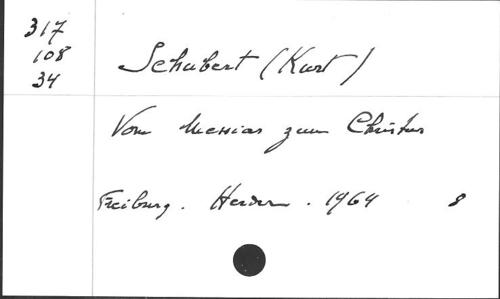 317
108
34
Schubert (Kurt)
Vom Messias zum Christus
Freiburg. Herder. 1964 8